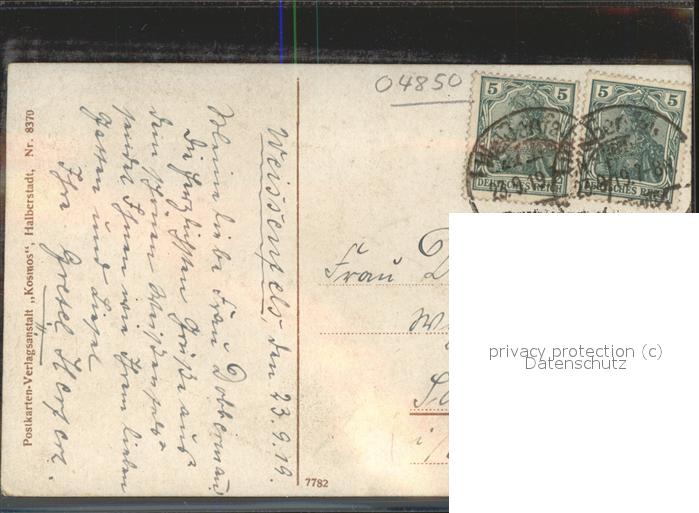 Weissenfels, den 23.9.19.
Meine liebe Frau Dobberman
Die herzlichsten Grüße aus
dem schönen Weißenfels
sendet Ihnen wie Ihrem lieben
Gatten und Liesel
Ihre Gretel Herfert.
Postkarten-Verlagsanstalt „Kosmos“, Halberstadt, Nr. 8370
7782
04850
5 5
DEUTSCHES REICH
5 5
DEUTSCHES REICH
Frau D
W
i/
privacy protection (c)
Datenschutz